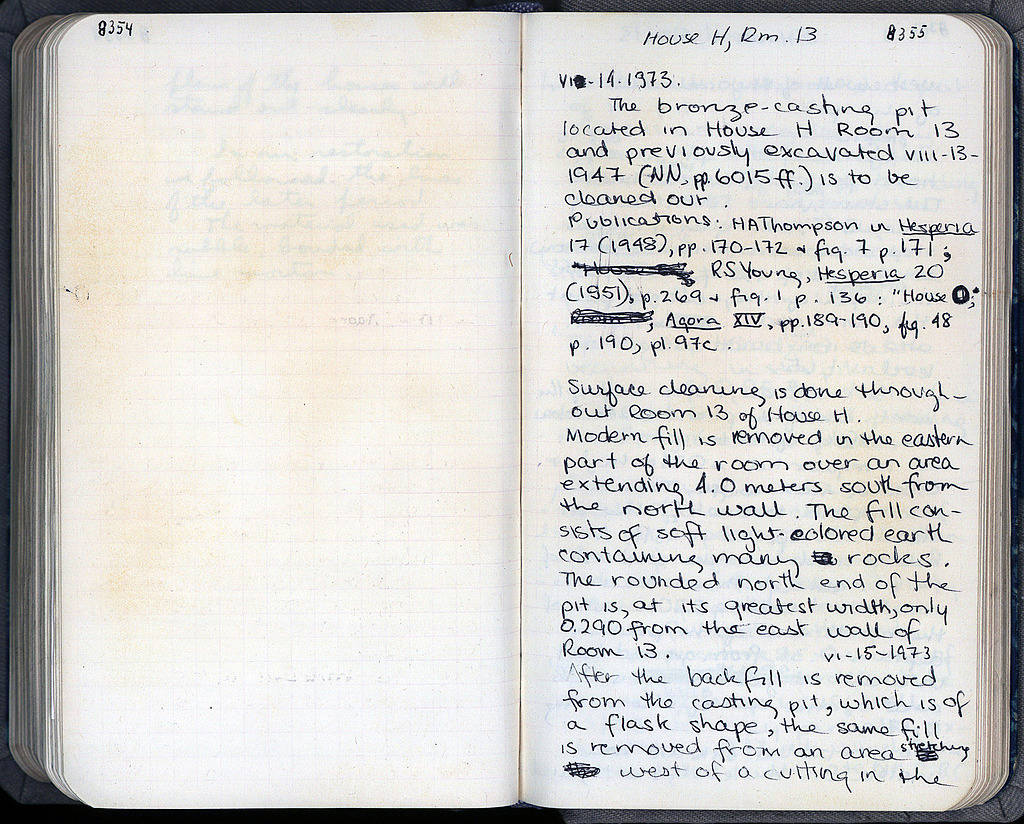 8354
House H, Rm. 13
8355
VI-14-1973.
The bronze-casting pit
located in House H Room 13
and previously excavated VIII-13-
1947 (NN, pp. 6015 ff.) is to be
cleaned out.
Publications: HAThompson in Hesperia
17 (1948), pp. 170-172 & fig. 7 p. 171;
RSYoung, Hesperia 20
(1951), p. 269 & fig. 1 p. 136: "House O;"
Agora XIV, pp. 189-190, fig. 48
p. 190, pl. 97c.
Surface cleaning is done through-
out Room 13 of House H.
Modern fill is removed in the eastern
part of the room over an area
extending 4.0 meters south from
the north wall. The fill con-
sists of soft light-colored earth
containing many rocks.
The rounded north end of the
pit is, at its greatest width, only
0.290 from the east wall of
Room 13. VI-15-1973
After the backfill is removed
from the casting pit, which is of
a flask shape, the same fill
is removed from an area stretching
west of a cutting in the